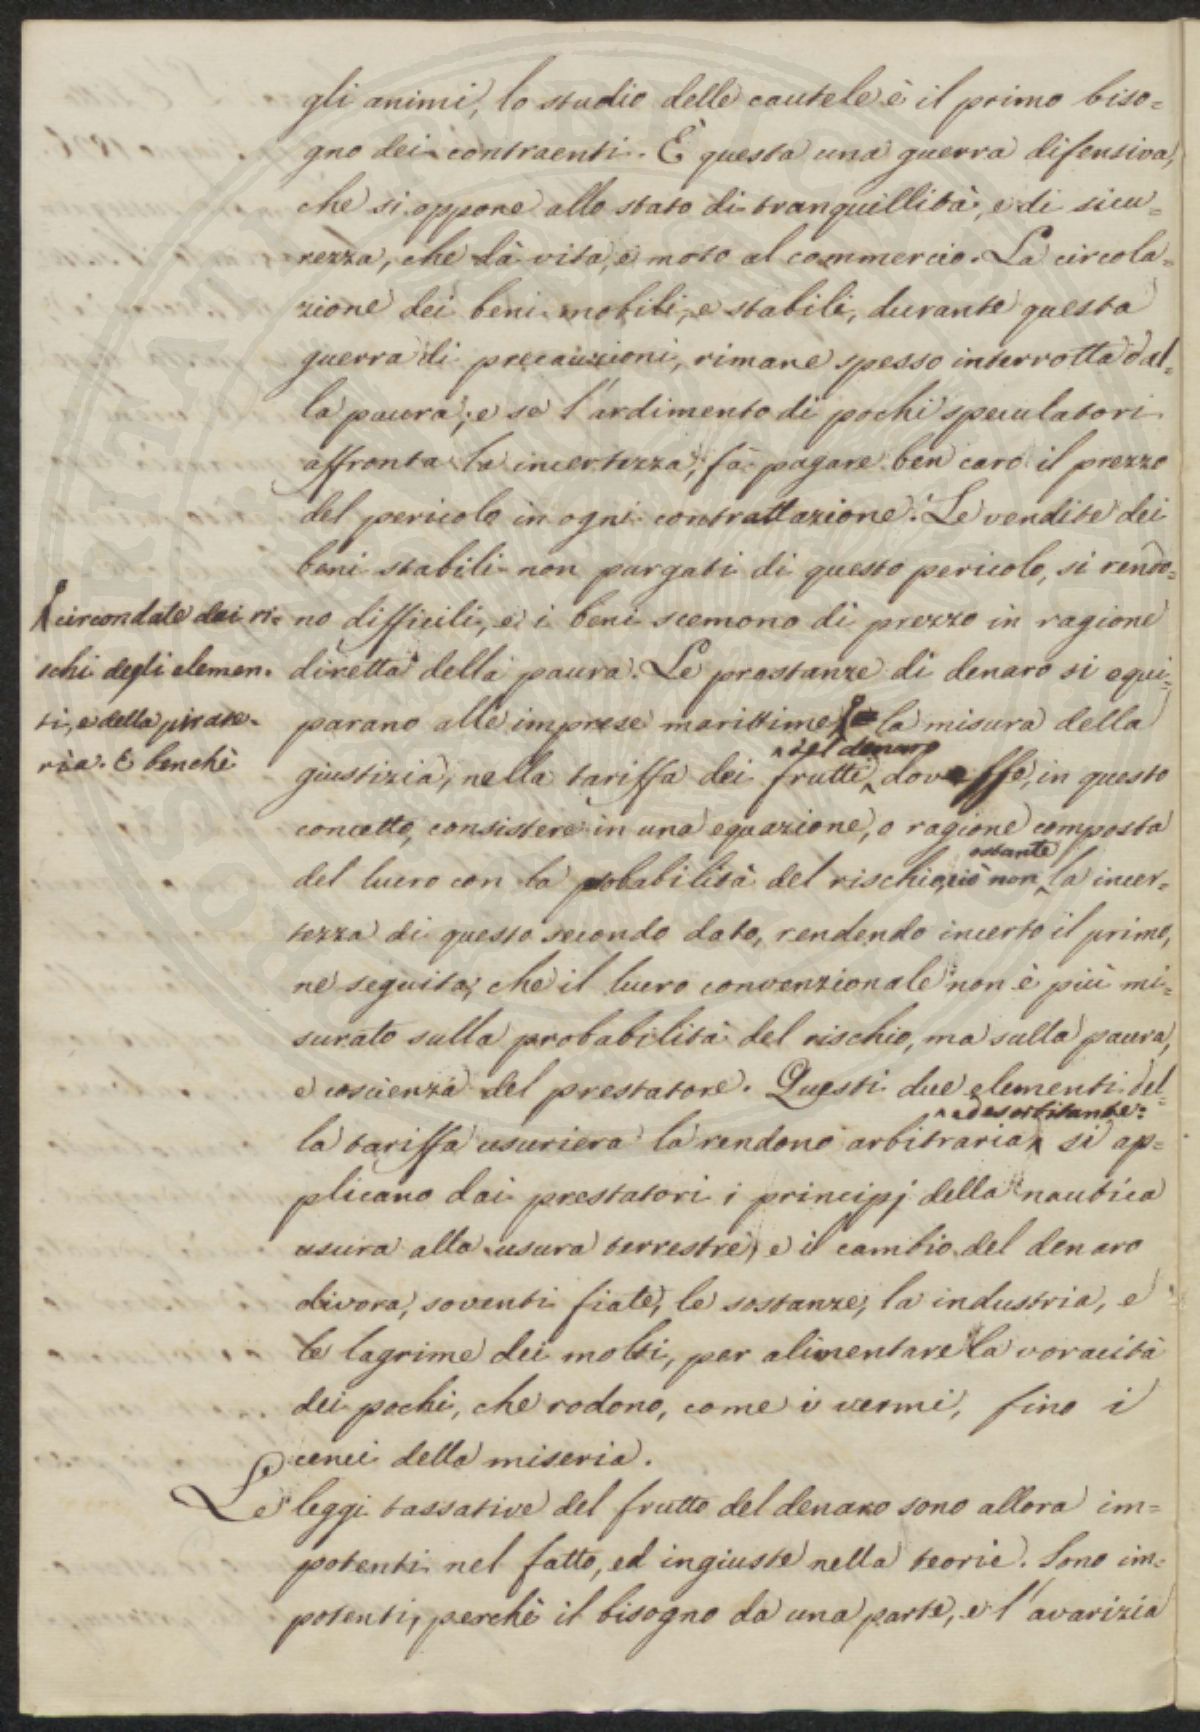 gli animi, lo studio delle cautele è il primo biso=
gno dei contraenti. È questa una guerra difensiva,
che si oppone allo stato di tranquillità, e di sicu=
rezza, che dà vita, e moto al commercio. La circola=
zione dei beni mobili, e stabili, durante questa
guerra di precauzioni, rimane spesso interrotta dal=
la paura; e se l'ardimento di pochi speculatori
affronta la incertezza, fà pagare ben caro il prezzo
del pericolo in ogni contrattazione. Le vendite dei
beni stabili non purgati di questo pericolo, si rendo=
no difficili, e i beni scemono di prezzo in ragione
diretta della paura. Le prestanze di denaro si equi=
parano alle imprese marittime la misura della
circondate dai ri=
schi degli elemen=
ti, e della pirate=
ria. E benchè
giustizia, nella tariffa dei frutti del denaro dovesse, in questo
concetto, consistere in una equazione, o ragione composta
del lucro con la probabilità del rischio, ciò non ostante la incer=
tezza di questo secondo dato, rendendo incerto il primo,
ne seguita, che il lucro convenzionale non è più mi=
surato sulla probabilità del rischio, ma sulla paura,
e coscienza del prestatore. Questi due elementi del=
la tariffa usuriera la rendono arbitraria, ed esorbitante: si ap=
plicano dai prestatori i principj della nautica
usura alla usura terrestre, e il cambio del denaro
divora, soventi fiate, le sostanze, la industria, e
le lagrime dei molti, per alimentare la voracità
dei pochi, che rodono, come i vermi, fino i
cenci della miseria.
Le leggi tassative del frutto del denaro sono allora im=
potenti nel fatto, ed ingiuste nella teoria. Sono im=
potenti, perchè il bisogno da una parte, e l'avarizia